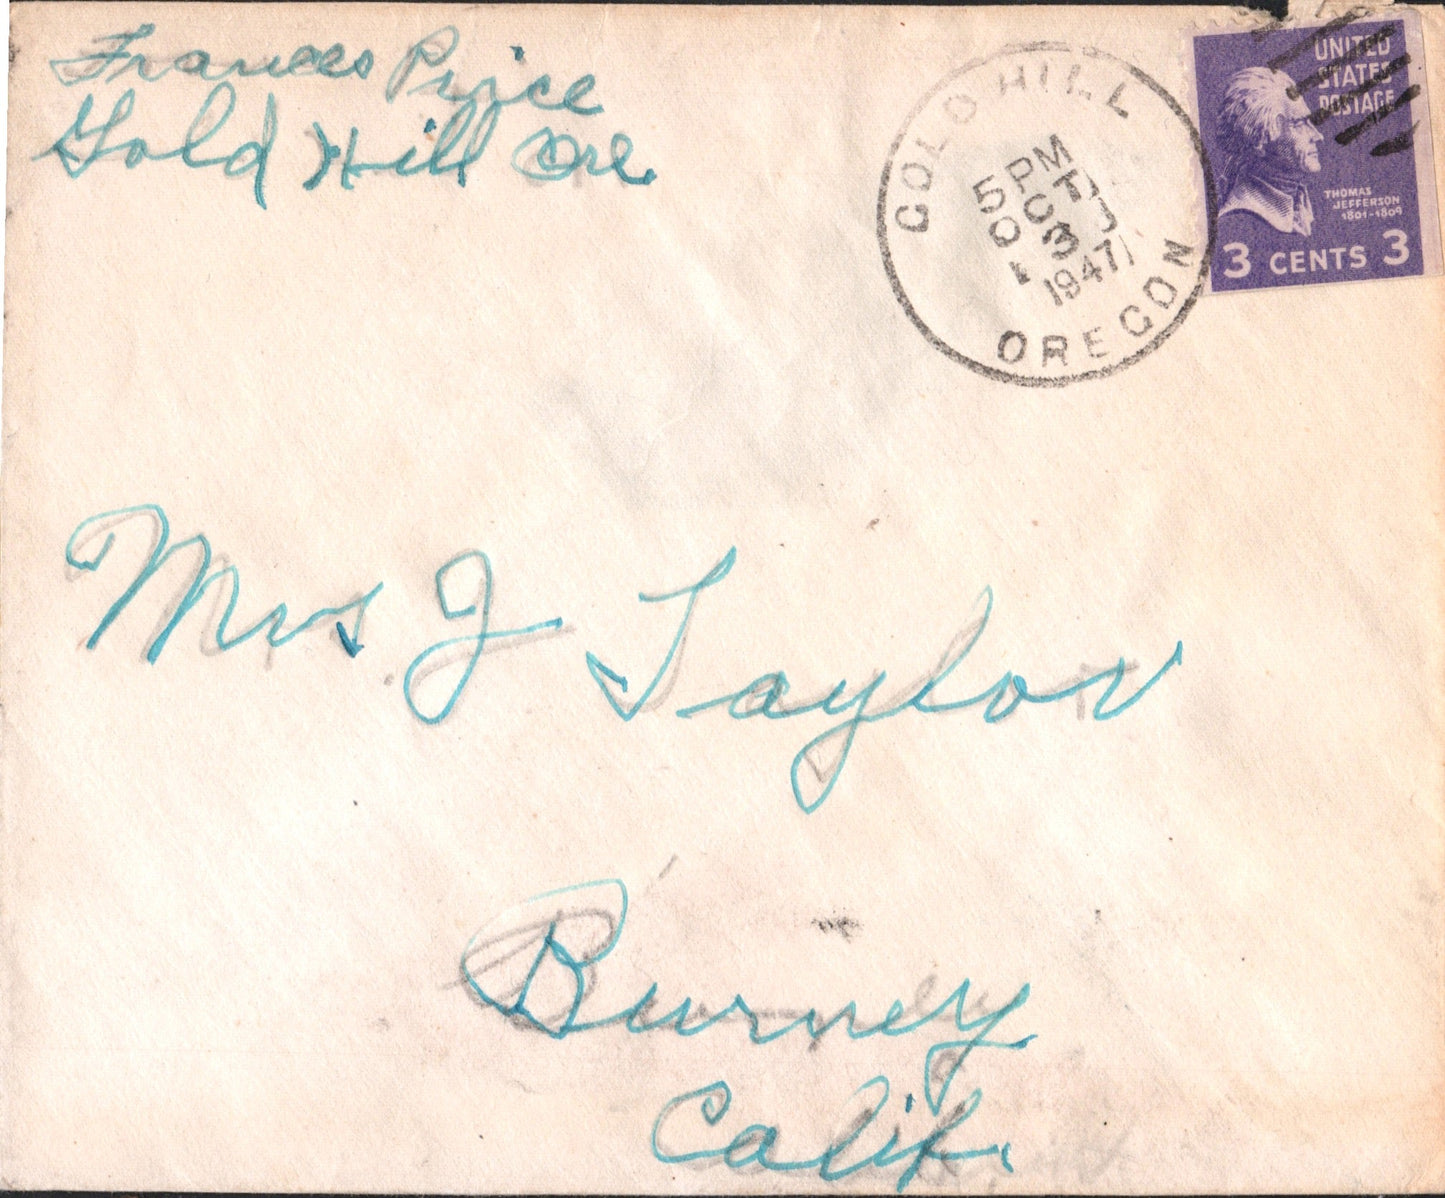 Frances Price
Gold Hill Ore.
GOLD HILL
5 PM
OCT
1947
OREGON
UNITED
STATES
POSTAGE
THOMAS
JEFFERSON
1801-1809
3 CENTS 3
Mrs J Taylor
Burney
Calif.